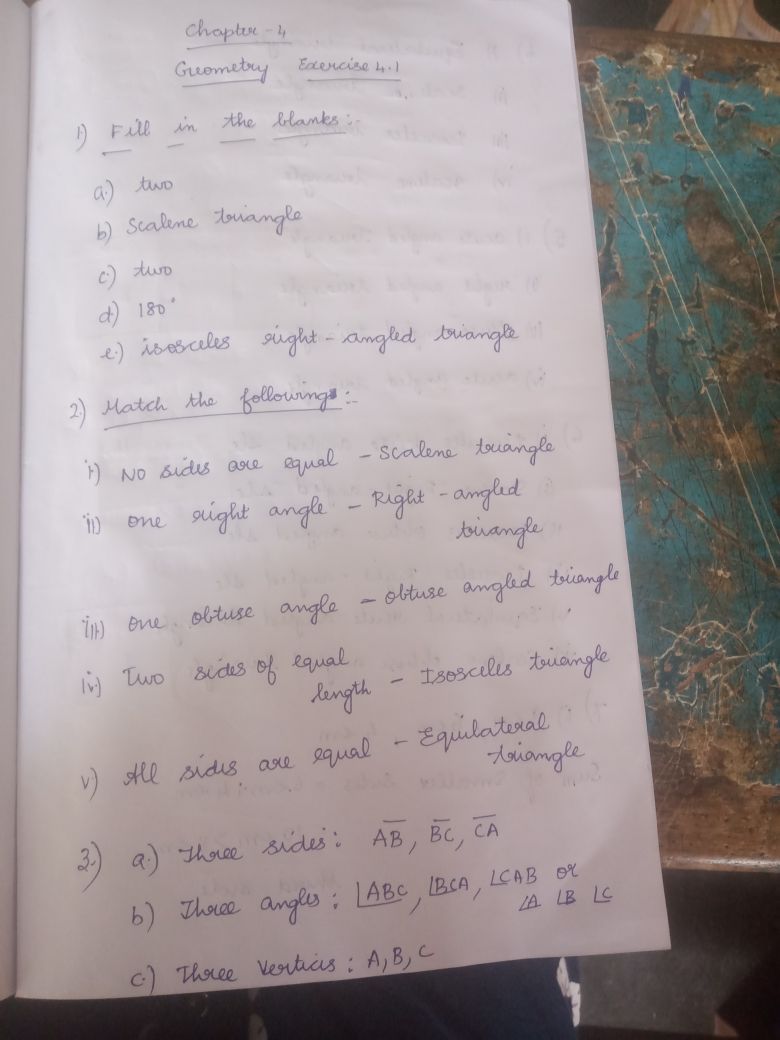 Chapter - 4
Geometry Exercise 4.1
1) Fill in the blanks :-
a.) two
b) Scalene triangle
c.) two
d) 180°
e.) isosceles right - angled triangle
2.) Match the following :-
i) No sides are equal - Scalene triangle
ii) one right angle - Right - angled
triangle
iii) one obtuse angle - obtuse angled triangle
iv) Two sides of equal
length - Isosceles triangle
v) All sides are equal - Equilateral
triangle
3.) a.) Three sides : A̅B̅, B̅C̅, C̅A̅
b) Three angles : ∠ABC, ∠BCA, ∠CAB or
∠A ∠B ∠C
c.) Three Vertices : A, B, C